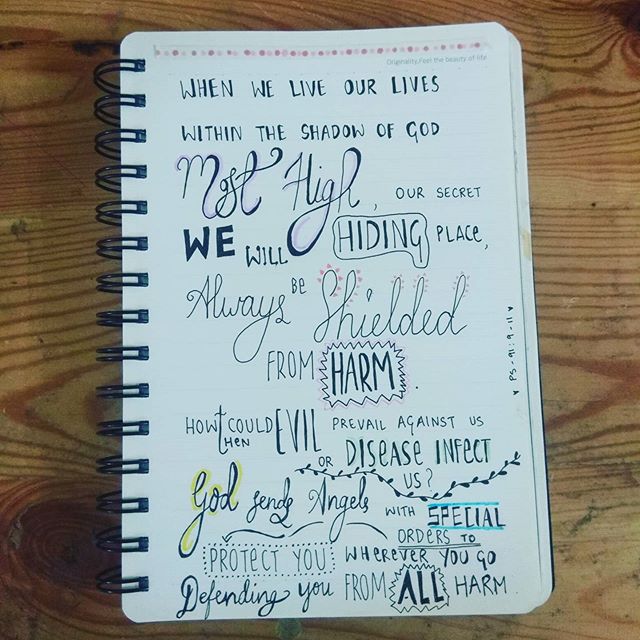 Originality, Feel the beauty of life
WHEN WE LIVE OUR LIVES
WITHIN THE SHADOW OF GOD
Most High, OUR SECRET
WE WILL HIDING PLACE,
Always BE Shielded
FROM HARM.
HOW THEN COULD EVIL PREVAIL AGAINST US
OR DISEASE INFECT
US?
God sends Angels WITH SPECIAL
ORDERS TO
PROTECT YOU WHEREVER YOU GO
Defending you FROM ALL HARM.
Ps-91:9-11